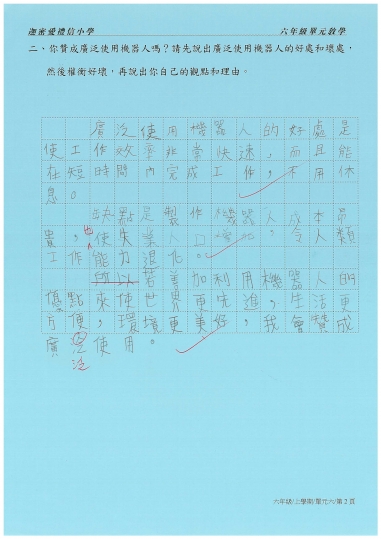 迦密愛禮信小學 六年級單元教學
二、你贊成廣泛使用機器人嗎？請先說出廣泛使用機器人的好處和壞處，
然後權衡好壞，再說出你自己的觀點和理由。
廣泛使用機器人的好處是
使工作效率非常快速，而且能
在短時間內完成工作，不用休
息。
缺點是製作機器人成本昂
貴，也使失業人口增加，令人類
工作能力退化。
所以若善加利用機器人的
優點來使世界更先進，生活更
方便，環境更美好，我會贊成
廣泛使用。
泛
六年級/上學期/單元六/第2頁